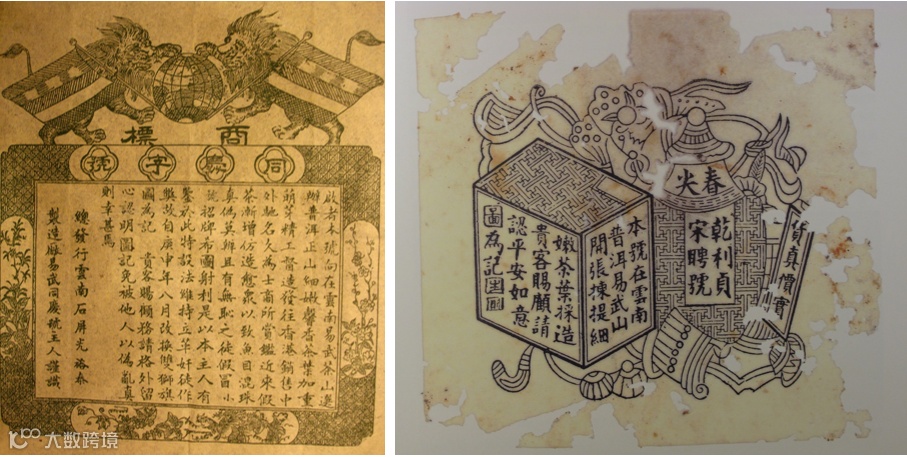 商標
同慶字號
啟者本號向在雲南易武茶山選
辦普洱正山細嫩馨香茶葉加重
萌芽精工督造發往香港銷售中
外馳名久為士商所賞鑑近來假
茶漸增仿造愈眾以致魚目混珠
真偽莫辨且有無恥之徒假冒小
號招牌布圖射利是以本主人有
鑒於此特設法維持立革奸徒作
獘茲自庚申年八月改換雙獅旗
圖為記 貴客賜顧務請格外留
心認明圖記免被他人以偽亂真
則幸甚焉
總發行雲南石屏光裕泰
製造廠易武同慶號主人謹識
春尖
貨真價實
乾利貞
宋聘號
本號在雲南
普洱易武山
開張揀提細
嫩茶葉採造
貴客賜顧請
認平安如意
圖為記
大数跨境